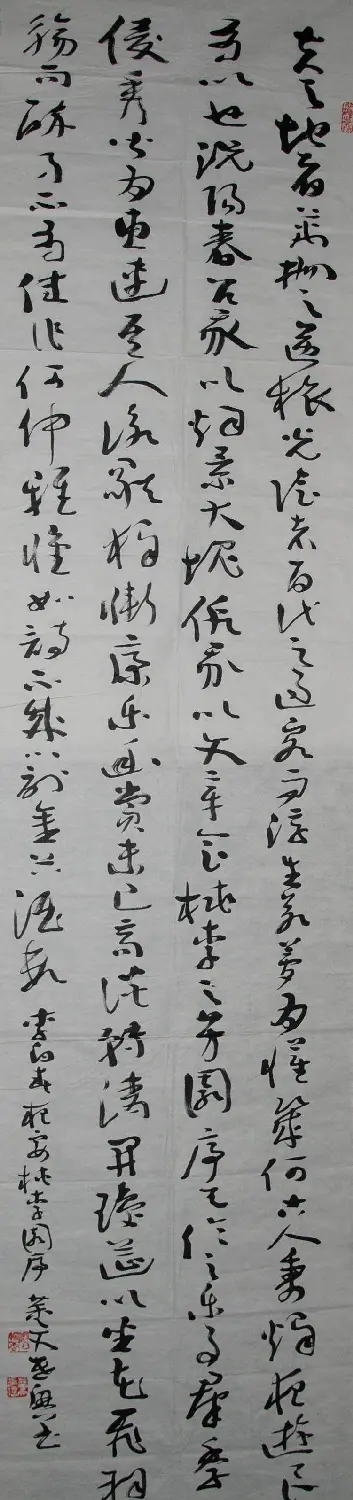 夫天地者萬物之逆旅光陰者百代之過客而浮生若夢為懽幾何古人秉燭夜遊良
有以也況陽春召我以烟景大塊假我以文章會桃李之芳園序天倫之樂事群季
俊秀皆為惠連吾人詠歌獨慚康樂幽賞未已高談轉清開瓊筵以坐花飛羽
觴而醉月不有佳作何伸雅懷如詩不成罰金谷酒數
李白春夜宴桃李園序